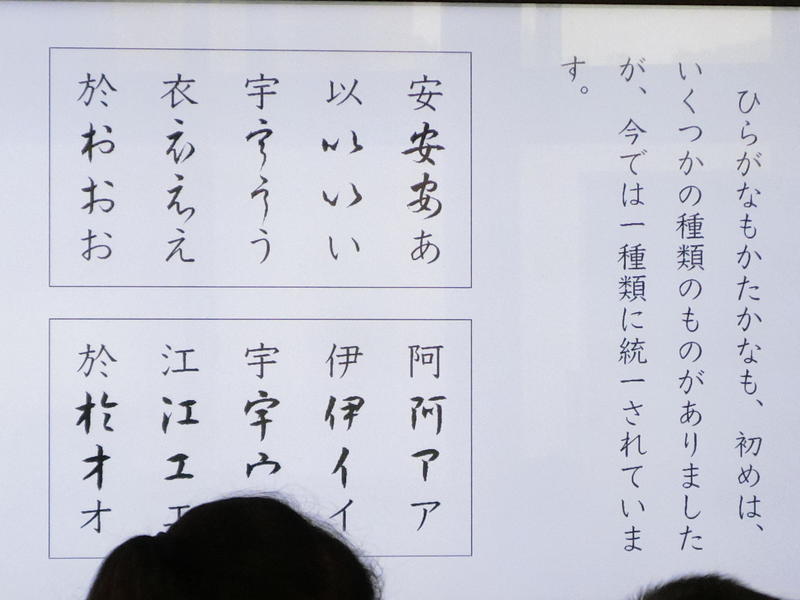 ひらがなもかたかなも、初めは、
いくつかの種類のものがありました
が、今では一種類に統一されていま
す。
安安安あ
以いいい
宇うう う
衣ええ え
於おおお
阿阿アア
伊伊イイ
宇宇ウ
江江エエ
於於オオ